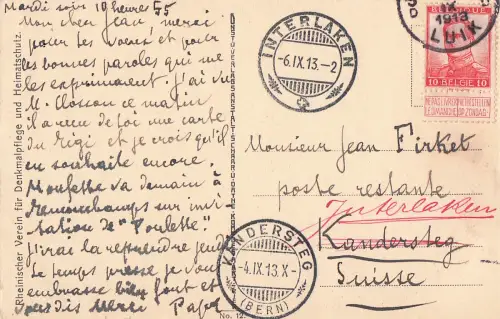 Mardi soir 10 heures 55
Mon cher Jean, merci
pour tes voeux et pour
les bonnes paroles qui me
les expriment. J'ai vu
M. Closson ce matin
il a reçu de toi une carte
du Rigi et je crois qu'il
en souhaite encore.
Moulette va demain à
Remouchamps sur invi-
tation de "Poulette"
J'irai la reprendre jeudi
Le temps presse je vous
embrasse bien fort et
vous dis Merci Papa
Rheinischer Verein für Denkmalpflege und Heimatschutz.
INTERLAKEN
-6.IX.13.-2
1913
LUIK
BELGIQUE
10 BELGIË 10
NE PAS LIVRER LE DIMANCHE
Monsieur Jean Firket
poste restante
Interlaken
Kandersteg
Suisse
KANDERSTEG
-4.IX.13.X-
(BERN)
No. 12.